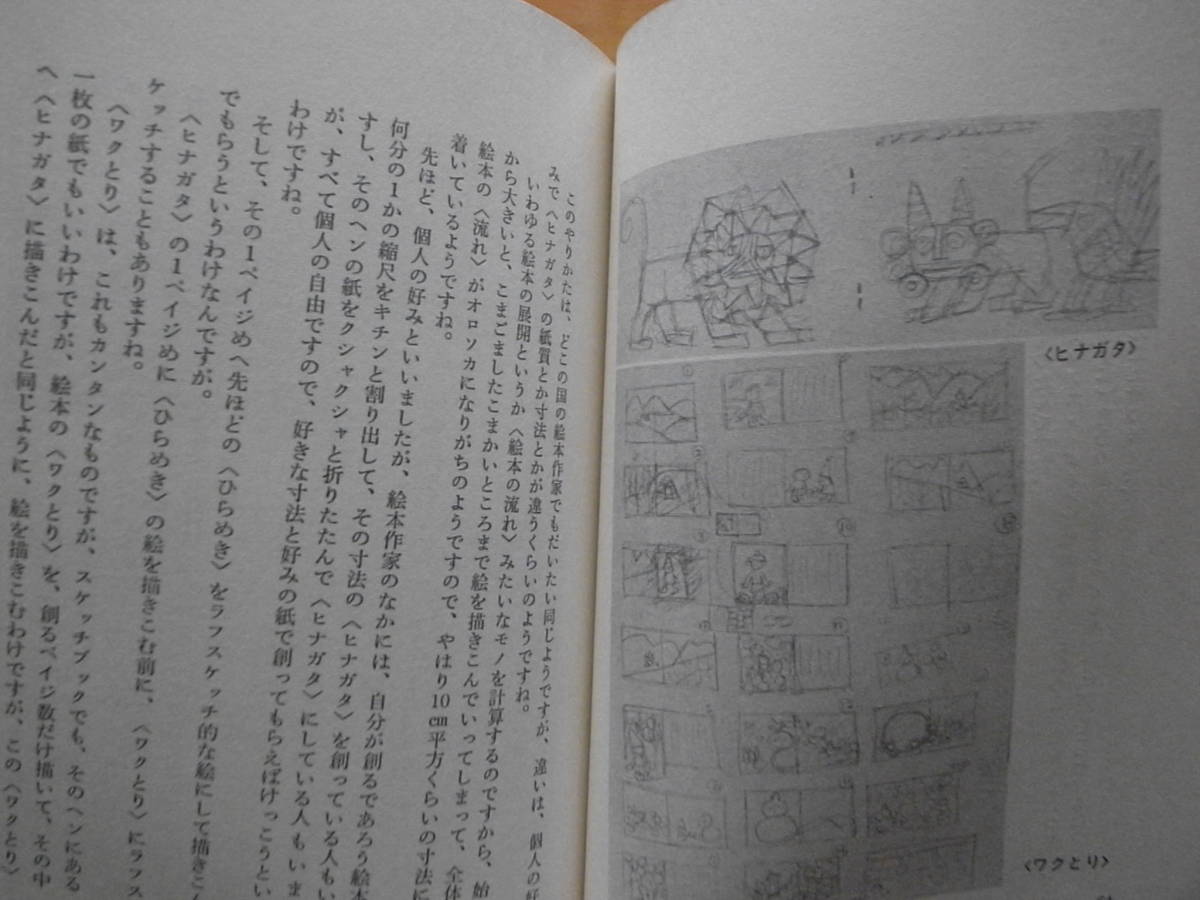 〈ヒナガタ〉
〈ワクとり〉
このやりかたは、どこの国の絵本作家でもだいたい同じようですが、違いは、個人の好
みで〈ヒナガタ〉の紙質とか寸法とかが違うくらいのようですね。
いわゆる絵本の展開というか〈絵本の流れ〉みたいなモノを計算するのですから、始
から大きいと、こまごましたこまかいところまで絵を描きこんでいってしまって、全体
絵本の〈流れ〉がオロソカになりがちのようですので、やはり10㎝平方くらいの寸法に
着いているようですね。
先ほど、個人の好みといいましたが、絵本作家のなかには、自分が創るであろう絵本
何分の1かの縮尺をキチンと割り出して、その寸法の〈ヒナガタ〉を創っている人もい
すし、そのヘンの紙をクシャクシャと折りたたんで〈ヒナガタ〉にしている人もいま
が、すべて個人の自由ですので、好きな寸法と好みの紙で創ってもらえばけっこうとい
わけですね。
そして、その1ペイジめへ先ほどの〈ひらめき〉をラフスケッチ的な絵にして描きこん
でもらうというわけなんですが。
〈ヒナガタ〉の1ペイジめに〈ひらめき〉の絵を描きこむ前に、〈ワクとり〉にラフス
ケッチすることもありますね。
〈ワクとり〉は、これもカンタンなものですが、スケッチブックでも、そのヘンにある
一枚の紙でもいいわけですが、絵本の〈ワクとり〉を、創るペイジ数だけ描いて、その中
へ〈ヒナガタ〉に描きこんだと同じように、絵を描きこむわけですが、この〈ワクとり〉